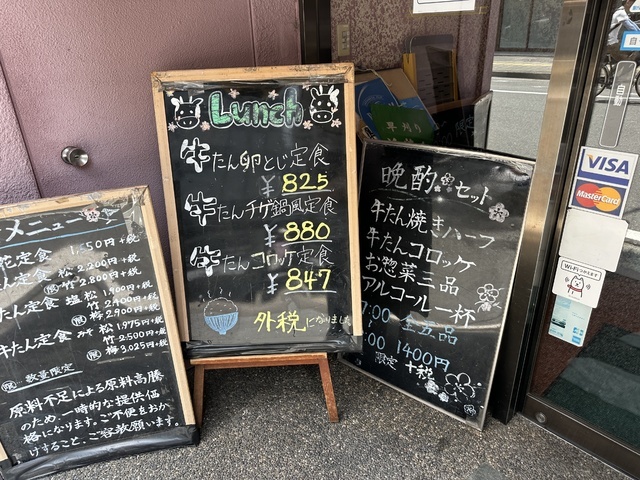 メニュー
花定食 1,650円+税
たん定食 松 2,200円+税
限 竹 2,800円+税
たん定食 塩 松 1,900円+税
竹 2,400円+税
限 梅 2,900円+税
牛たん定食 みそ 松 1,975円+税
竹 2,500円+税
限 梅 3,025円+税
限 数量限定
原料不足による原料高騰
のため、一時的な提供価
格になります。ご不便をおか
けすること、ご容赦願います。
Lunch
牛たん卵とじ定食
¥825
牛たんチゲ鍋風定食
¥880
牛たんコロッケ定食
¥847
外税になりました
晩酌セット
牛たん焼きハーフ
牛たんコロッケ
お惣菜三品
アルコール一杯
:00 全五品
:00 1400円
限定 +税
早刈り
自動
VISA
MasterCard
Wi-Fiつかえます